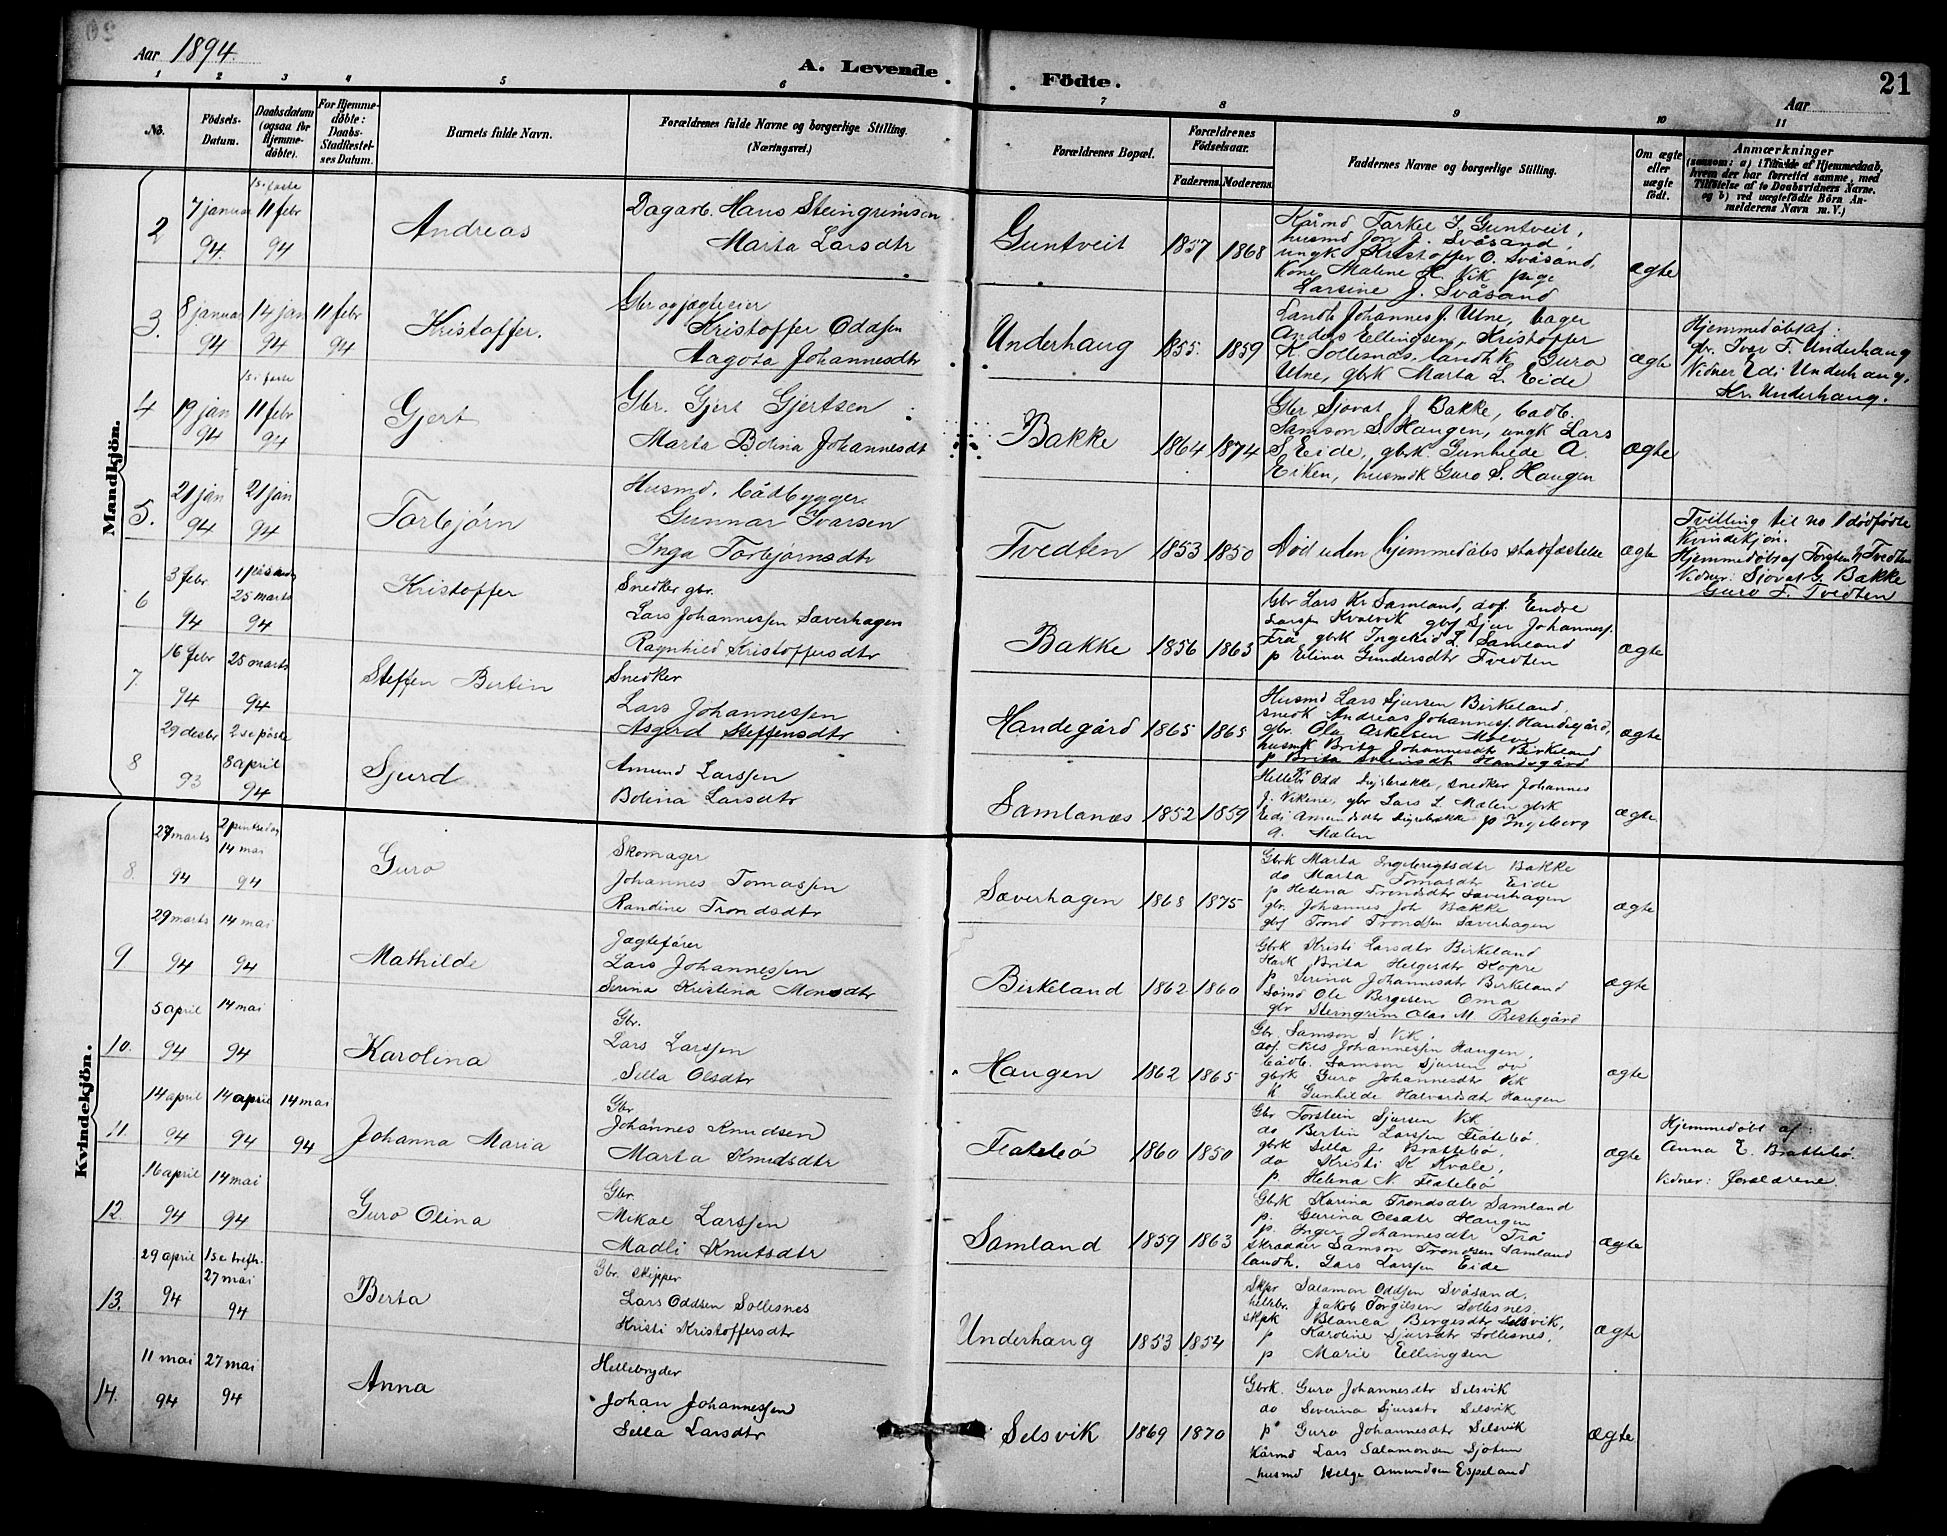 Aar 1894.
A. Levende Födte.
Aar
21
1 2 3 4 5 6 7 8 9 10 11
No.
Födsels-
Datum.
Daabsdatum
(ogsaa for
Hjemme-
döbte).
For Hjemme-
döbte:
Daabs-
Stadfæstel-
ses Datum.
Barnets fulde Navn.
Forældrenes fulde Navne og borgerlige Stilling.
(Næringsvei.)
Forældrenes Bopæl.
Forældrenes
Födselsaar.
Faderens. Moderens.
Faddernes Navne og borgerlige Stilling.
Om ægte
eller
uægte
födt.
Anmærkninger
(saasom: a) i Tilfælde af Hjemmedaab,
hvem der har forrettet samme, med
Tilföielse af to Daabsvidners Navne.
og b) ved uægtefödte Börn An-
melderens Navn m. V.)
Mandkjön.
2
7 januar
94.
1s i faste
11 febr
94
Andreas
Dagarb. Hans Steingrimsen
Marta Larsdtr
Guntveit
1857
1868
Kårmd Tarkel I. Guntveit,
husmd Jon J. Svåsand,
ungk Kristoffer O. Svåsand,
Kone Malene H. Vik pige
Larsine J. Svåsand
ægte
3.
8 januar
94
14 jan
94
11 febr
94
Kristoffer.
Gbr og jægteeier
Kristoffer Oddsen
Aagota Johannesdtr
Underhaug
1855.
1859
Landh Johannes J. Utne, bager
Anders Ellingsen, Kristoffer
K. Sollesnæs, landhk Guro
Utne, gbrk Marta L. Eide
ægte
Hjemmedöbt af:
gbr. Iver T. Underhaug
Vidner Edi Underhaug,
Kr. Underhaug.
4
19 jan
94
1s i faste
11 febr
94
Gjert
Gbr. Gjert Gjertsen
Marta Bolina Johannesdt
Bakke
1864
1874
Gbr Sjovat J. Bakke, badb.
Samson S. Haugen, ungk Lars
S. Eide, gbrk. Gunhilde A.
Eiken, husmdk Guro S. Haugen
ægte
5.
21 jan
94
21 jan
94
Torbjörn
Husmd. bådbygger
Gunnar Ivarsen
Inga Torbjörnsdtr
Tvedten
1853
1850
Död uden hjemmedåbs stadfæstelse
ægte
Tvilling til no 1 dödfödte
Kvindekjön.
Hjemmedöbt af Torsten Tvedten
Vidner: Sjovat G. Bakke
Guro T. Tvedten
6
3 febr
94
25 marts
94
Kristoffer
Snedker gbr.
Lars Johannessen Saverhagen
Ragnhild Kristoffersdtr
Bakke
1856
1863
Gbr Lars Kr Samland, do. Endre
Larsen Kvalvik gbs Sjur Johannes.
Trå gbrk Ingebrid L. Samland
p Elina Gundersdtr Tvedten
ægte
7.
16 febr
94
25 marts
94
Steffen Bertin
Snedker
Lars Johannessen
Asgerd Steffensdtr
Handegård
1865
1865
Husmd Lars Sjursen Birkeland,
snedk Andreas Johannes. Handegård,
gbr. Ola Askelsen
husmk Brita Johannesdtr Birkeland
p Brita Handegård
ægte
8
29 desbr
93
2 se påske
8 april
94
Sjurd
Amund Larssen
Bolina Larsdtr
Samlanæs
1852
1859
Hellebr Odd snedker Johannes
J. Vikene, gbr Lars L. Mælen gbrk
Edi Amundsdtr p Ingeborg
A. Mælen
ægte
Kvindekjön.
8.
27 marts
94
2 pintsedag
14 mai
94
Guro
Skomager
Johannes Tomassen
Randine Trondsdtr
Sæverhagen
1868
1875
Gbrk Marta Ingebrigtsdtr Bakke
do Marta Tomasdtr Eide
p Helena Trondsdtr Saverhagen
gbr. Johannes Joh Bakke
gbs Trond Trondsen Saverhagen
ægte
9
29 marts
94
14 mai
94
Mathilde
Jægtefører
Lars Johannessen
Serina Kristina Monsdtr
Birkeland
1862
1860
Gbrk Kristi Larsdtr Birkeland
Kark Brita Helgesdtr Kopre
p Serina Johannesdtr Birkeland
Sömd Ole Bergesen Oma
gbr Steingrim Olas M. Prestegård
ægte
10.
5 april
94
14 mai
94
Karolina
Gbr.
Lars Larssen
Sella Olsdtr
Haugen
1862
1865
Gbr. Samson S. Vik,
do. Nils Johannessen Haugen,
bådb. Samson Sjursen do
gbrk Guro Johannesdtr Vik
k Gunhilde Halvardsdt Haugen
ægte
11
14 april
94
14 april
94
14 mai
94
Johanna Maria
Gbr
Johannes Knudsen
Marta Knudsdtr
Fiatebö
1860
1850
Gbr Torstein Sjursen Vik
do Bertin Larssen Fiatebö
gbrk Sella J. Brattebö,
do Kristi K Kvale,
p. Helena N. Fiatebö
ægte
Hjemmedöbt af
Anna E. Brattebö.
Vidner: forældrene
12.
16 april
94
14 mai
94
Guro Olina
Gbr
Mikal Larssen
Madli Knutsdtr
Samland
1859
1863
Gbrk Karina Trondsdtr Samland
p. Gurina Olsdtr Haugen
p. Inger Johannesdtr Trå
Skrædder Samson Trondsen Samland
landh. Lars Larssen Eide
ægte
13.
29 april
94
1 se trefh.
27 mai
94
Berta
Gbr. skipper
Lars Oddsen Sollesnes
Kristi Kristoffersdtr
Underhaug
1853
1854
Skpr Salamon Oddsen Svåsand.
hellebr. Jakob Torgilsen Sollesnes.
skpk Blanca Bergesdtr Selsvik,
p Karoline Sjursdtr Sollesnes,
p Marie Ellingsen
ægte
14.
11 mai
94
27 mai
94
Anna
Hellebryder
Johan Johannessen
Sella Larsdtr
Selsvik
1869
1870
Gbrk. Guro Johannesdtr Selsvik
do Severina Sjursdtr Selsvik
p Guro Johannesdtr Selsvik
Kårmd Lars Salamonsen Sjotun
husmd Helge Amundsen Espeland
ægte